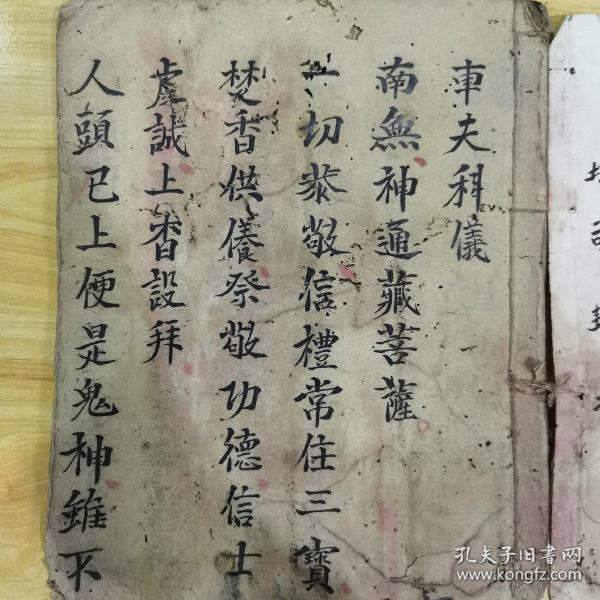 車夫科儀
南無神通藏菩薩
一切恭敬信禮常住三寶
焚香供養祭敬功德信士
虔誠上香設拜
人頭已上便是鬼神雖不
孔夫子旧书网
www.kongfz.com